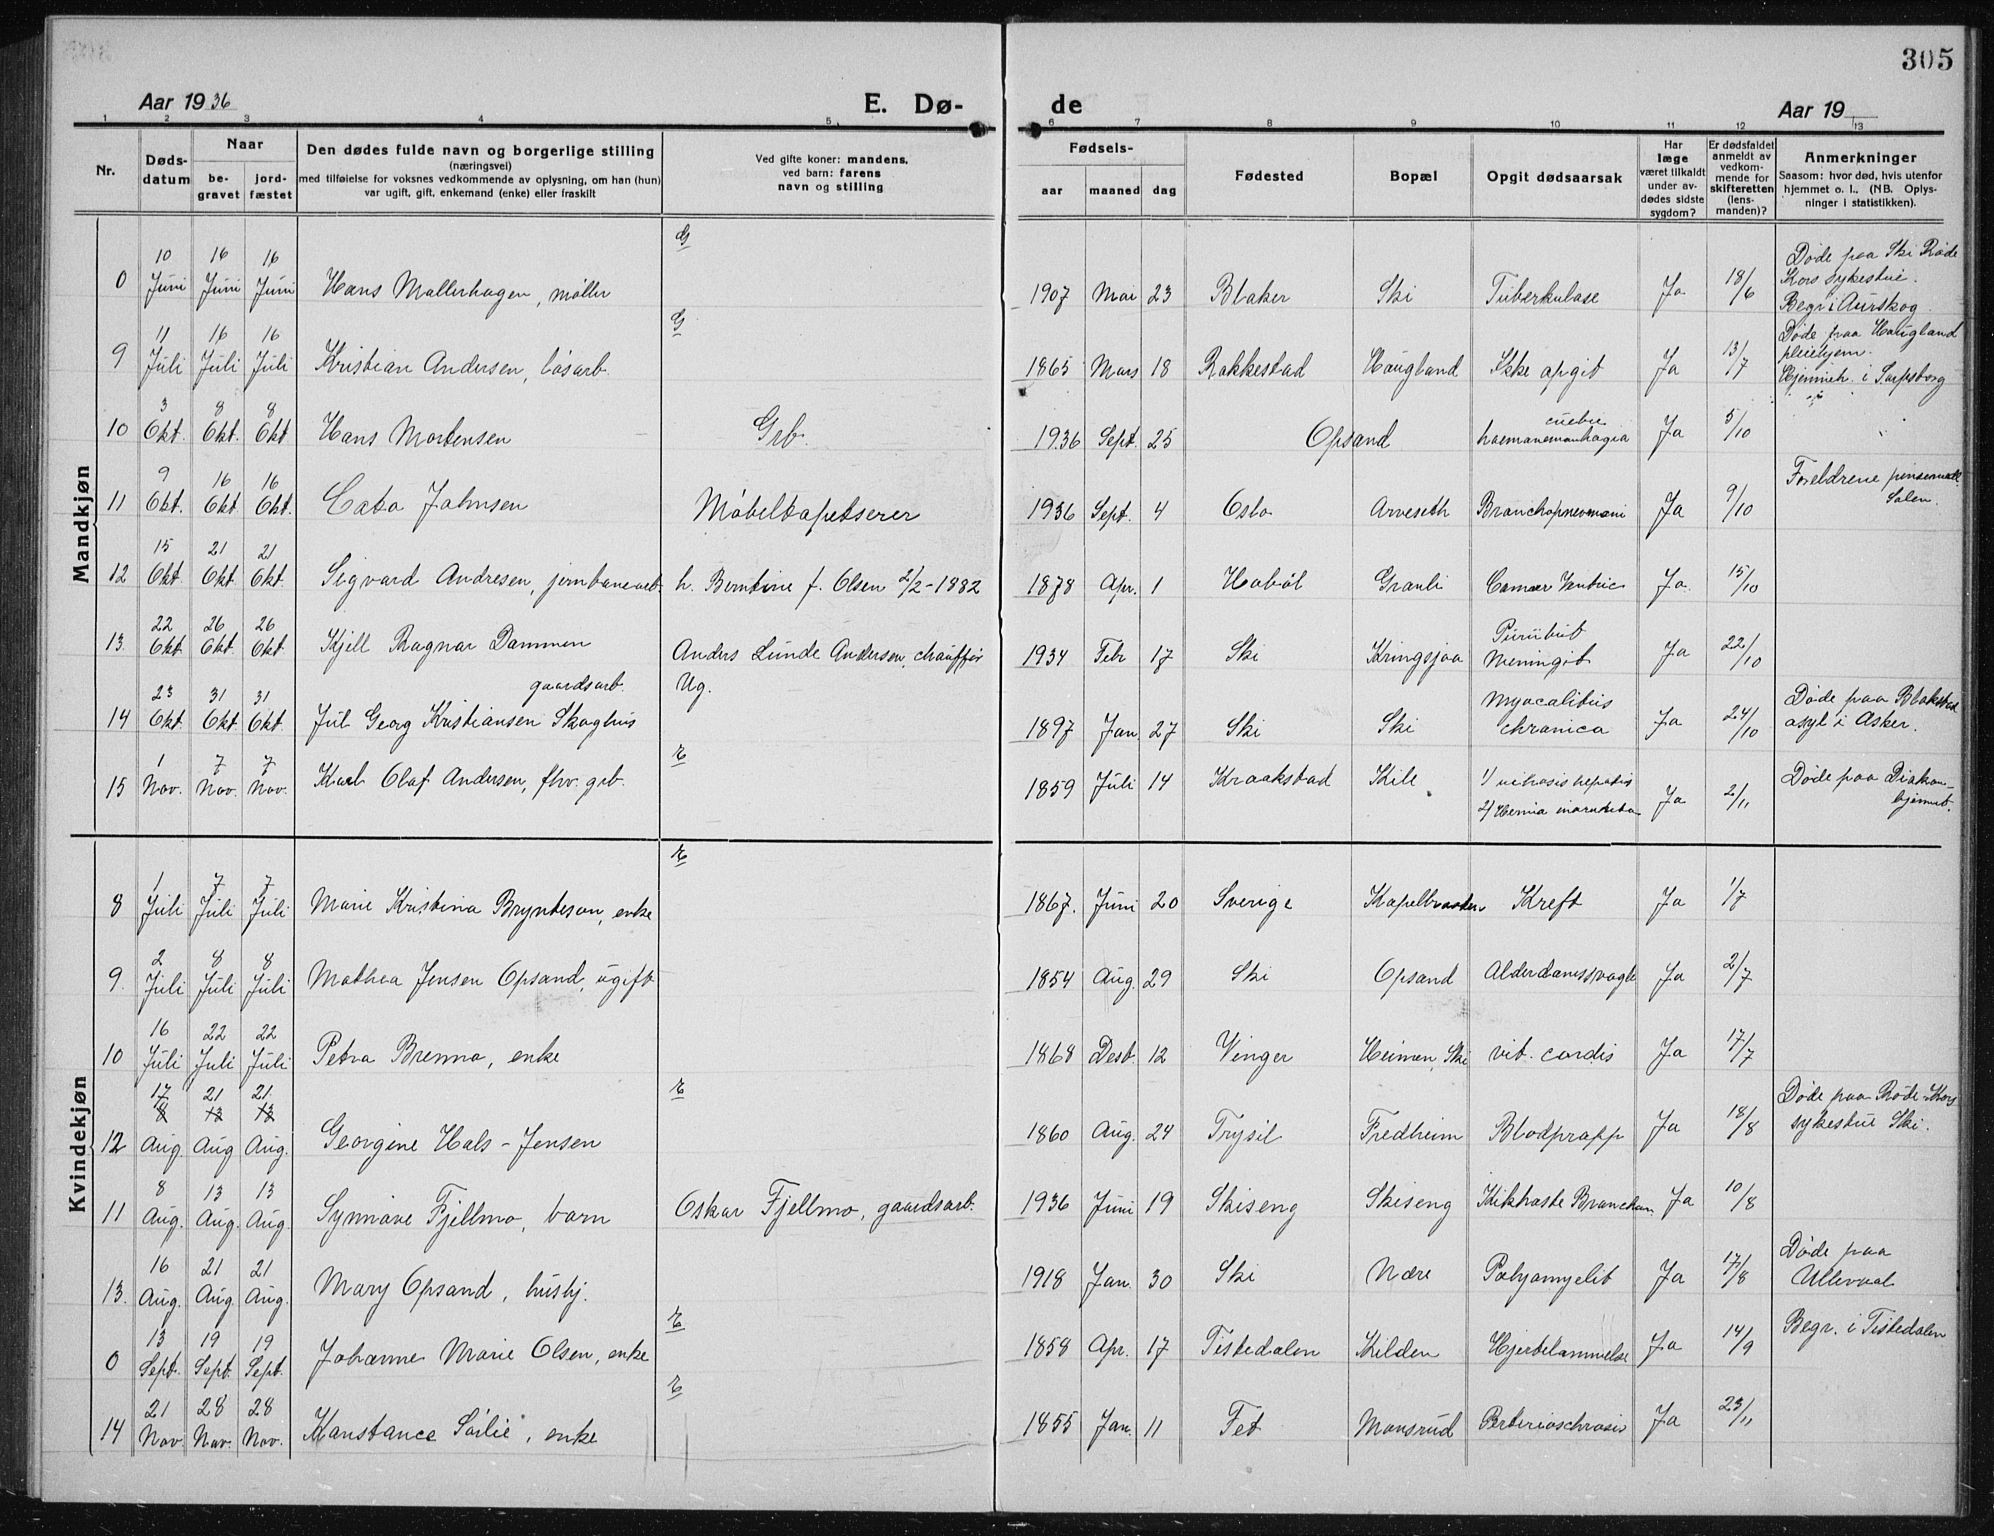 305
Aar 1936 E. Dø- de Aar 19
1 2 3 4 5. 6 7 8 9 10 11 12 13
Nr. Døds-datum Naar be-gravet jord-fæstet Den dødes fulde navn og borgerlige stilling (næringsvei) med tilføielse for voksnes vedkommende av oplysning, om han (hun) var ugift, gift, enkemand (enke) eller fraskilt Ved gifte koner: mandens, ved barn: farens navn og stilling Fødsels- aar maaned dag Fødested Bopæl Opgit dødsaarsak Har læge været tilkaldt under av-dødes sidste sygdom? Er dødsfaldet anmeldt av vedkom-mende for skifteretten (lens-manden)? Anmerkninger Saasom: hvor død, hvis utenfor hjemmet o. l.. (NB. Oplys-ninger i statistikken).
Mandkjøn
0 10 Juni 16 Juni 16 Juni Hans Mallerhagen, møller G 1907 Mai 23 Blaker Ski Tuberkulose Ja 18/6 Døde paa Ski Røde Kors sykestue. Begr. i Aurskog
9 11 Juli 16 Juli 16 Juli Kristian Andersen, løsarb. G 1865 Mars 18 Rakkestad Haugland Ikke opgit Ja 13/7 Døde paa Haugland pleiehjem. Hjemmeh. i Sarpsborg
10 3 Okt. 8 Okt. 8 Okt Hans Mortensen Grb. 1936 Sept. 25 Opsand Ja 5/10
11 9 Okt. 16 Okt. 16 Okt. Cato Johnsen Møbeltapetserer 1936 Sept. 4 Oslo Arveseth Bronchopnevmoni Ja 9/10 Foreldrene
12 15 Okt. 21 Okt. 21 Okt. Sigvard Andresen, jernbanearb. h. Berntine f. Olsen 2/2-1882 1878 Apr. 1 Hobøl Granli Ja. 15/10
13. 22 Okt. 26 Okt. 26 Okt. Kjell Ragnar Dammen Anders Lunde Andersen, chauffør 1934 Febr 17 Ski Kringsjaa Meningit Ja 22/10
14 23 Okt. 31 Okt 31 Okt. Jul Georg Kristiansen Skoghus gaardsarb. Ug. 1897 Jan. 27 Ski Ski chronica Ja 24/10 Døde paa Blakstad asyl i Asker.
15 1 Nov. 7 Nov. 7 Nov. Karl Olaf Andersen, fhv. grb. E 1859 Juli 14 Kraakstad Kile 1/ hepatis 2/ Hernia Ja 2/11 Døde paa Diakon-hjemmet.
Kvindekjøn
8 1 Juli 7 Juli 7 Juli Marie Kristina Brynteson, enke E 1867. Juni 20 Sverige Kreft Ja 1/7
9. 2 Juli 8 Juli 8 Juli Mathea Jensen Opsand, ugift 1854 Aug. 29 Ski Opsand Ja 2/7
10 16 Juli 22 Juli 22 Juli Petra Brenna, enke 1868 Desb. 12 Vinger Heimen, Ski vit. cordis Ja 17/7
12 17 8 Aug. 21 13 Aug 21. 13 Aug. Georgine Hals-Jensen E 1860 Aug. 24 Trysil Fredheim Blodpropp Ja 18/8 Døde paa Røde Kors sykestue Ski.
11 8 Aug. 13 Aug. 13 Aug. Synnøve Fjellmo, barn Oskar Fjellmo, gaardsarb. 1936 Juni 19 Skiseng Skiseng Kikhoste Ja 10/8
13. 16 Aug. 21 Aug. 21 Aug. Mary Opsand, hushj. 1918 Jan. 30 Ski Nære Polyomyelit Ja 17/8 Døde paa Ullevaal
0 13 Sept. 19 Sept. 19 Sept. Johanne Marie Olsen, enke E 1858 Apr. 17 Tistedalen Kilden Hjertelammelse Ja 14/9 Begr. i Tistedalen
14 21 Nov. 28 Nov. 28 Nov. Konstance Sørlie, enke E 1855 Jan. 11 Fet Monsrud Ja 23/11